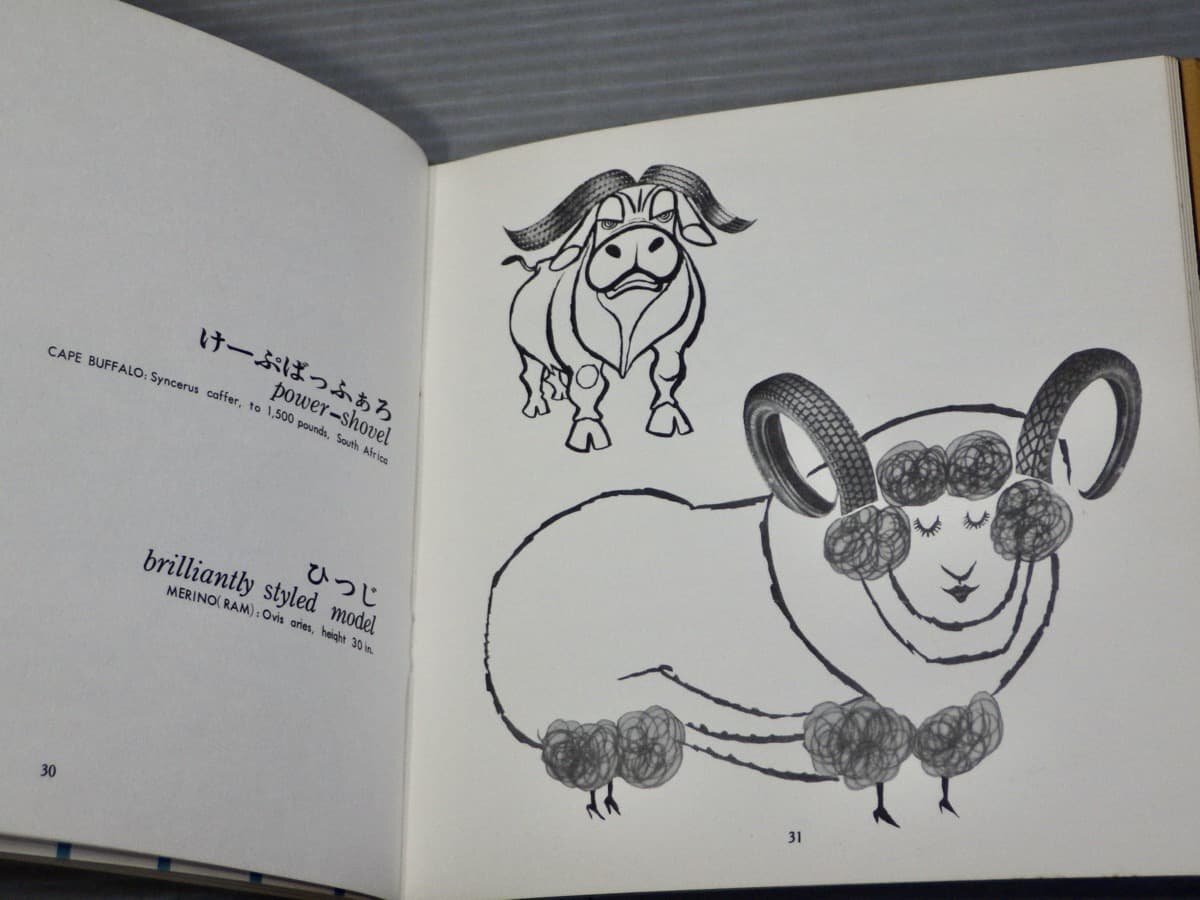 けーぷばっふぁろ
power-shovel
CAPE BUFFALO: Syncerus caffer, to 1,500 pounds, South Africa
ひつじ
brilliantly styled model
MERINO(RAM): Ovis aries, height 30 in.
30
31